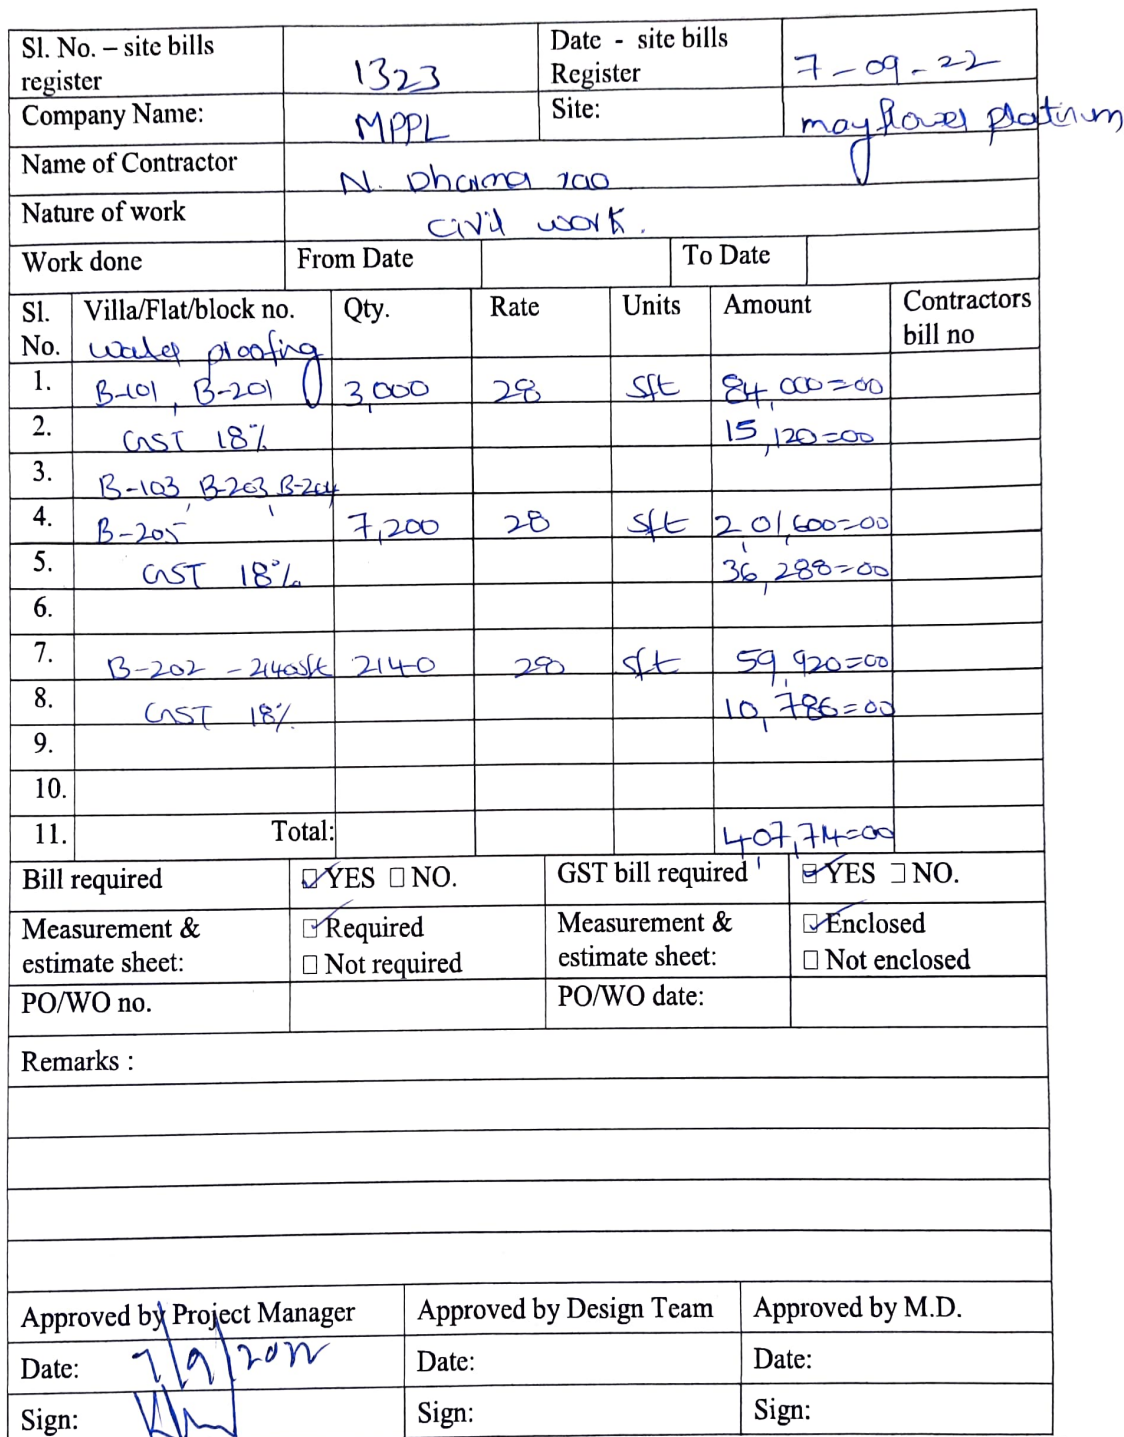 Sl. No. – site bills register 1323 Date - site bills Register 7-09-22
Company Name: MPPL Site: mayflower platinum
Name of Contractor N. Dharma rao
Nature of work civil work.
Work done From Date To Date
Sl. No. Villa/Flat/block no. Qty. Rate Units Amount Contractors bill no
water proofing
1. B-101, B-201 3,000 28 sft 84,000=00
2. GST 18% 15,120=00
3. B-103, B-203, B-204
4. B-205 7,200 28 sft 2,01,600=00
5. GST 18% 36,288=00
6.
7. B-202 - 2140sft 2140 28 sft 59,920=00
8. GST 18% 10,786=00
9.
10.
11. Total: 4,07,714=00
Bill required YES NO. GST bill required YES NO.
Measurement & estimate sheet: Required Not required Measurement & estimate sheet: Enclosed Not enclosed
PO/WO no. PO/WO date:
Remarks :
Approved by Project Manager Approved by Design Team Approved by M.D.
Date: 7/9/2022 Date: Date:
Sign: Sign: Sign: